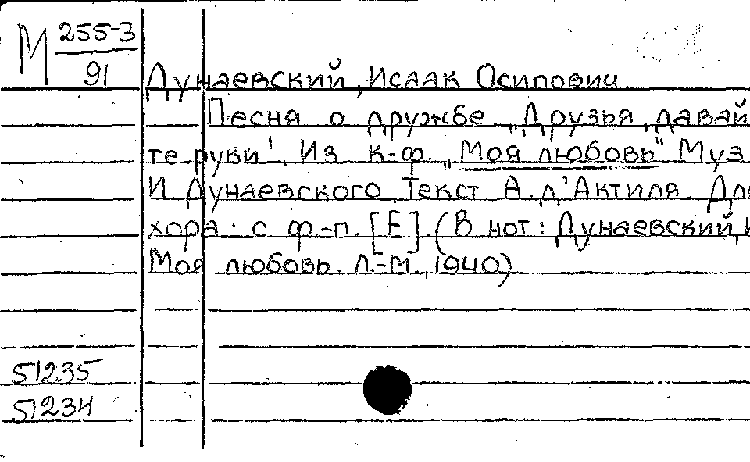 М 255-3
91
Дунаевский, Исаак Осипович
Песня о дружбе „Друзья, давай
те руки". Из к-ф „Моя любовь" Муз
И Дунаевского Текст А. д'Актиля Для
хора с ф-п. [Е]. (В нот: Дунаевский, И
Моя любовь. Л.-М., 1940)
51235
51234